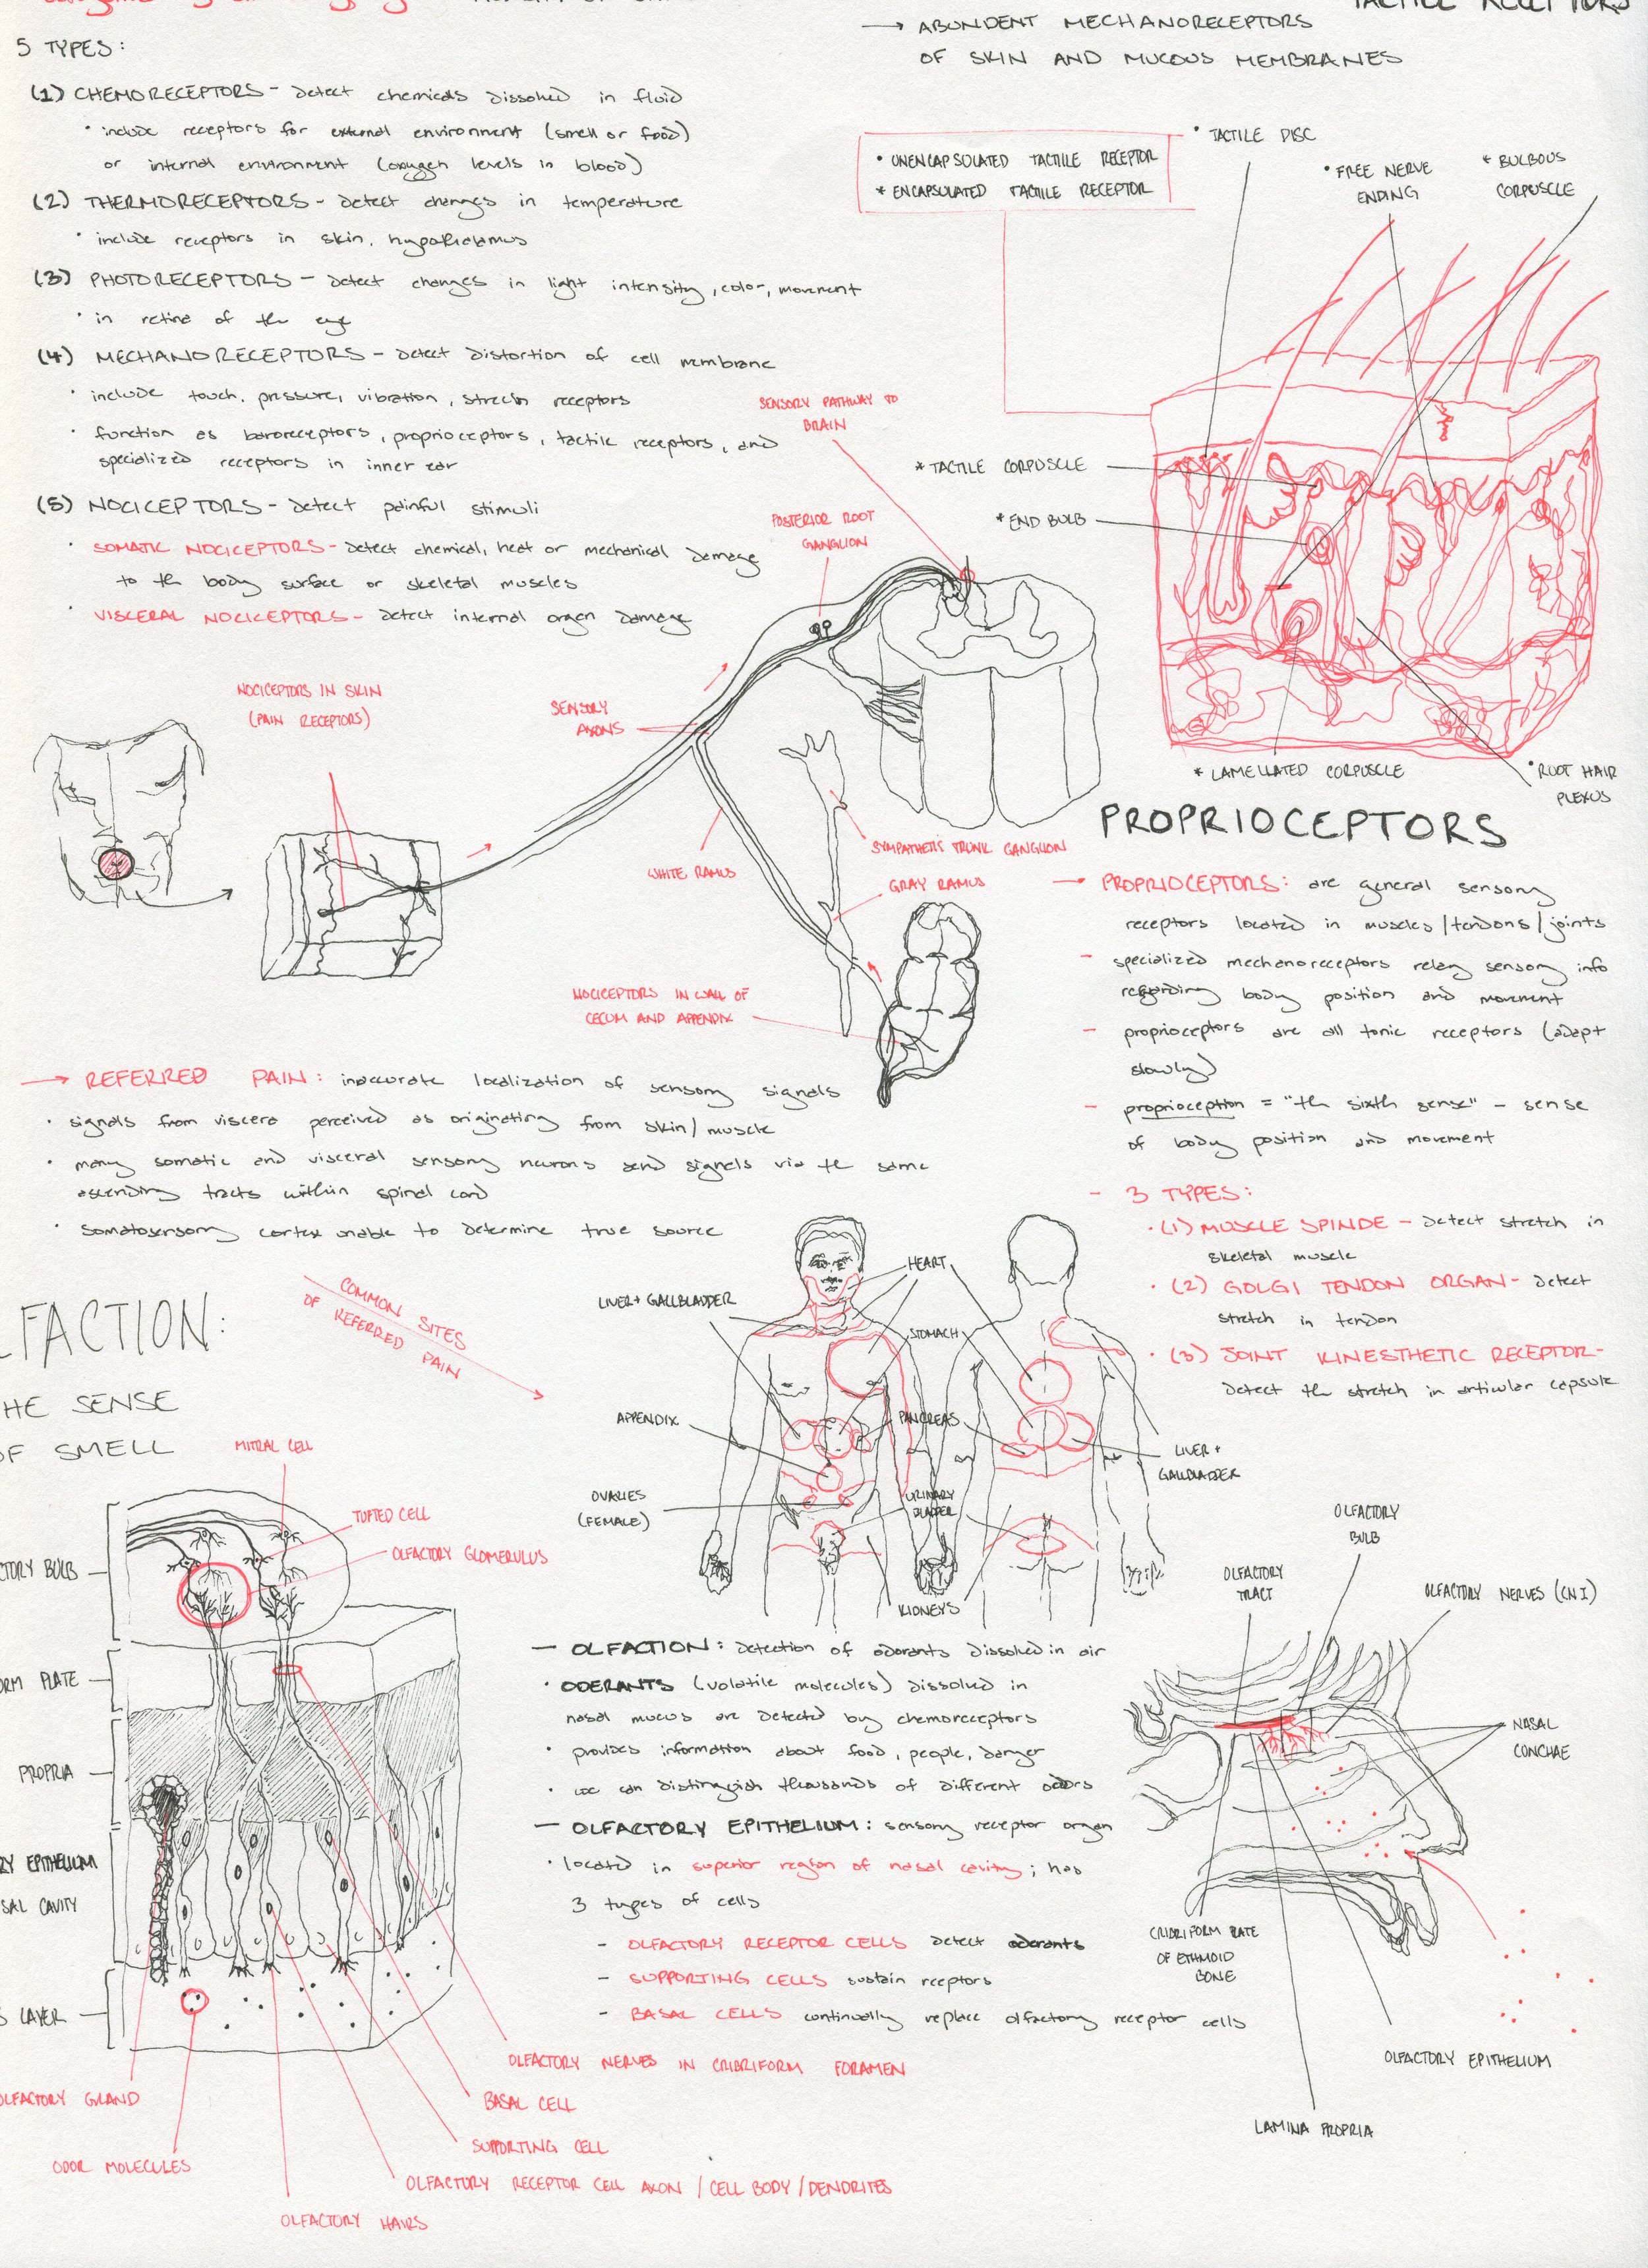 5 TYPES:
(1) CHEMORECEPTORS - detect chemicals dissolved in fluid
• include receptors for external environment (smell or food)
or internal environment (oxygen levels in blood)
(2) THERMORECEPTORS - detect changes in temperature
• include receptors in skin, hypothalamus
(3) PHOTORECEPTORS - detect changes in light intensity, color, movement
• in retina of the eye
(4) MECHANORECEPTORS - detect distortion of cell membrane
• include touch, pressure, vibration, stretch receptors
• function as baroreceptors, proprioceptors, tactile receptors, and
specialized receptors in inner ear
(5) NOCICEPTORS - detect painful stimuli
• SOMATIC NOCICEPTORS - detect chemical, heat or mechanical damage
to the body surface or skeletal muscles
• VISCERAL NOCICEPTORS - detect internal organ damage
TACTILE RECEPTORS
→ ABUNDENT MECHANORECEPTORS
OF SKIN AND MUCOUS MEMBRANES
• UNENCAPSULATED TACTILE RECEPTOR
* ENCAPSULATED TACTILE RECEPTOR
• TACTILE DISC
• FREE NERVE
ENDING
* BULBOUS
CORPUSCLE
* TACTILE CORPUSCLE
* END BULB
* LAMELLATED CORPUSCLE
• ROOT HAIR
PLEXUS
SENSORY PATHWAY TO
BRAIN
POSTERIOR ROOT
GANGLION
NOCICEPTORS IN SKIN
(PAIN RECEPTORS)
SENSORY
AXONS
WHITE RAMUS
SYMPATHETIC TRUNK GANGLION
GRAY RAMUS
NOCICEPTORS IN WALL OF
CECUM AND APPENDIX
PROPRIOCEPTORS
→ PROPRIOCEPTORS: are general sensory
receptors located in muscles/tendons/joints
- specialized mechanoreceptors relay sensory info
regarding body position and movement
- proprioceptors are all tonic receptors (adapt
slowly)
- proprioception = "the sixth sense" - sense
of body position and movement
- 3 TYPES:
• (1) MUSCLE SPINDE - detect stretch in
skeletal muscle
• (2) GOLGI TENDON ORGAN - detect
stretch in tendon
• (3) JOINT KINESTHETIC RECEPTOR -
detect the stretch in articular capsule
→ REFERRED PAIN: inaccurate localization of sensory signals
• signals from viscera perceived as originating from skin/muscle
• many somatic and visceral sensory neurons send signals via the same
ascending tracts within spinal cord
• somatosensory cortex unable to determine true source
COMMON SITES
OF REFERRED PAIN
HEART
LIVER + GALLBLADDER
STOMACH
APPENDIX
PANCREAS
LIVER +
GALLBLADDER
OVARIES
(FEMALE)
URINARY
BLADDER
KIDNEYS
LFACTION:
HE SENSE
OF SMELL
MITRAL CELL
TUFTED CELL
OLFACTORY GLOMERULUS
CTORY BULB
ORM PLATE
PROPRIA
RY EPITHELIUM
SAL CAVITY
S LAYER
OLFACTORY GLAND
ODOR MOLECULES
OLFACTORY HAIRS
OLFACTORY RECEPTOR CELL AXON / CELL BODY / DENDRITES
SUPPORTING CELL
BASAL CELL
OLFACTORY NERVES IN CRIBRIFORM FORAMEN
- OLFACTION: detection of odorants dissolved in air
• ODERANTS (volatile molecules) dissolved in
nasal mucus are detected by chemoreceptors
• provides information about food, people, danger
• we can distinguish thousands of different odors
- OLFACTORY EPITHELIUM: sensory receptor organ
• located in superior region of nasal cavity; has
3 types of cells
- OLFACTORY RECEPTOR CELLS detect odorants
- SUPPORTING CELLS sustain receptors
- BASAL CELLS continually replace olfactory receptor cells
OLFACTORY
BULB
OLFACTORY
TRACT
OLFACTORY NERVES (CN I)
NASAL
CONCHAE
CRIBRIFORM PLATE
OF ETHMOID
BONE
OLFACTORY EPITHELIUM
LAMINA PROPRIA